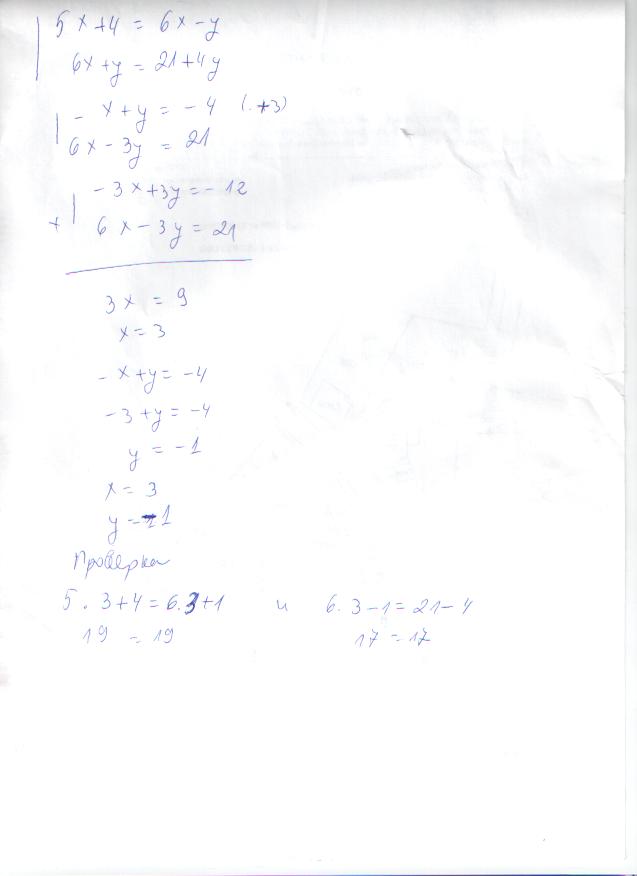 5x+4 = 6x-y
6x+y = 21+4y
-x+y = -4 (.+3)
6x-3y = 21
-3x+3y=-12
+ 6x-3y=21
3x = 9
x=3
-x+y=-4
-3+y=-4
y = -1
x= 3
y=-1
Проверка
5. 3+4=6.3+1 и 6. 3-1=21-4
19 =19 17=17